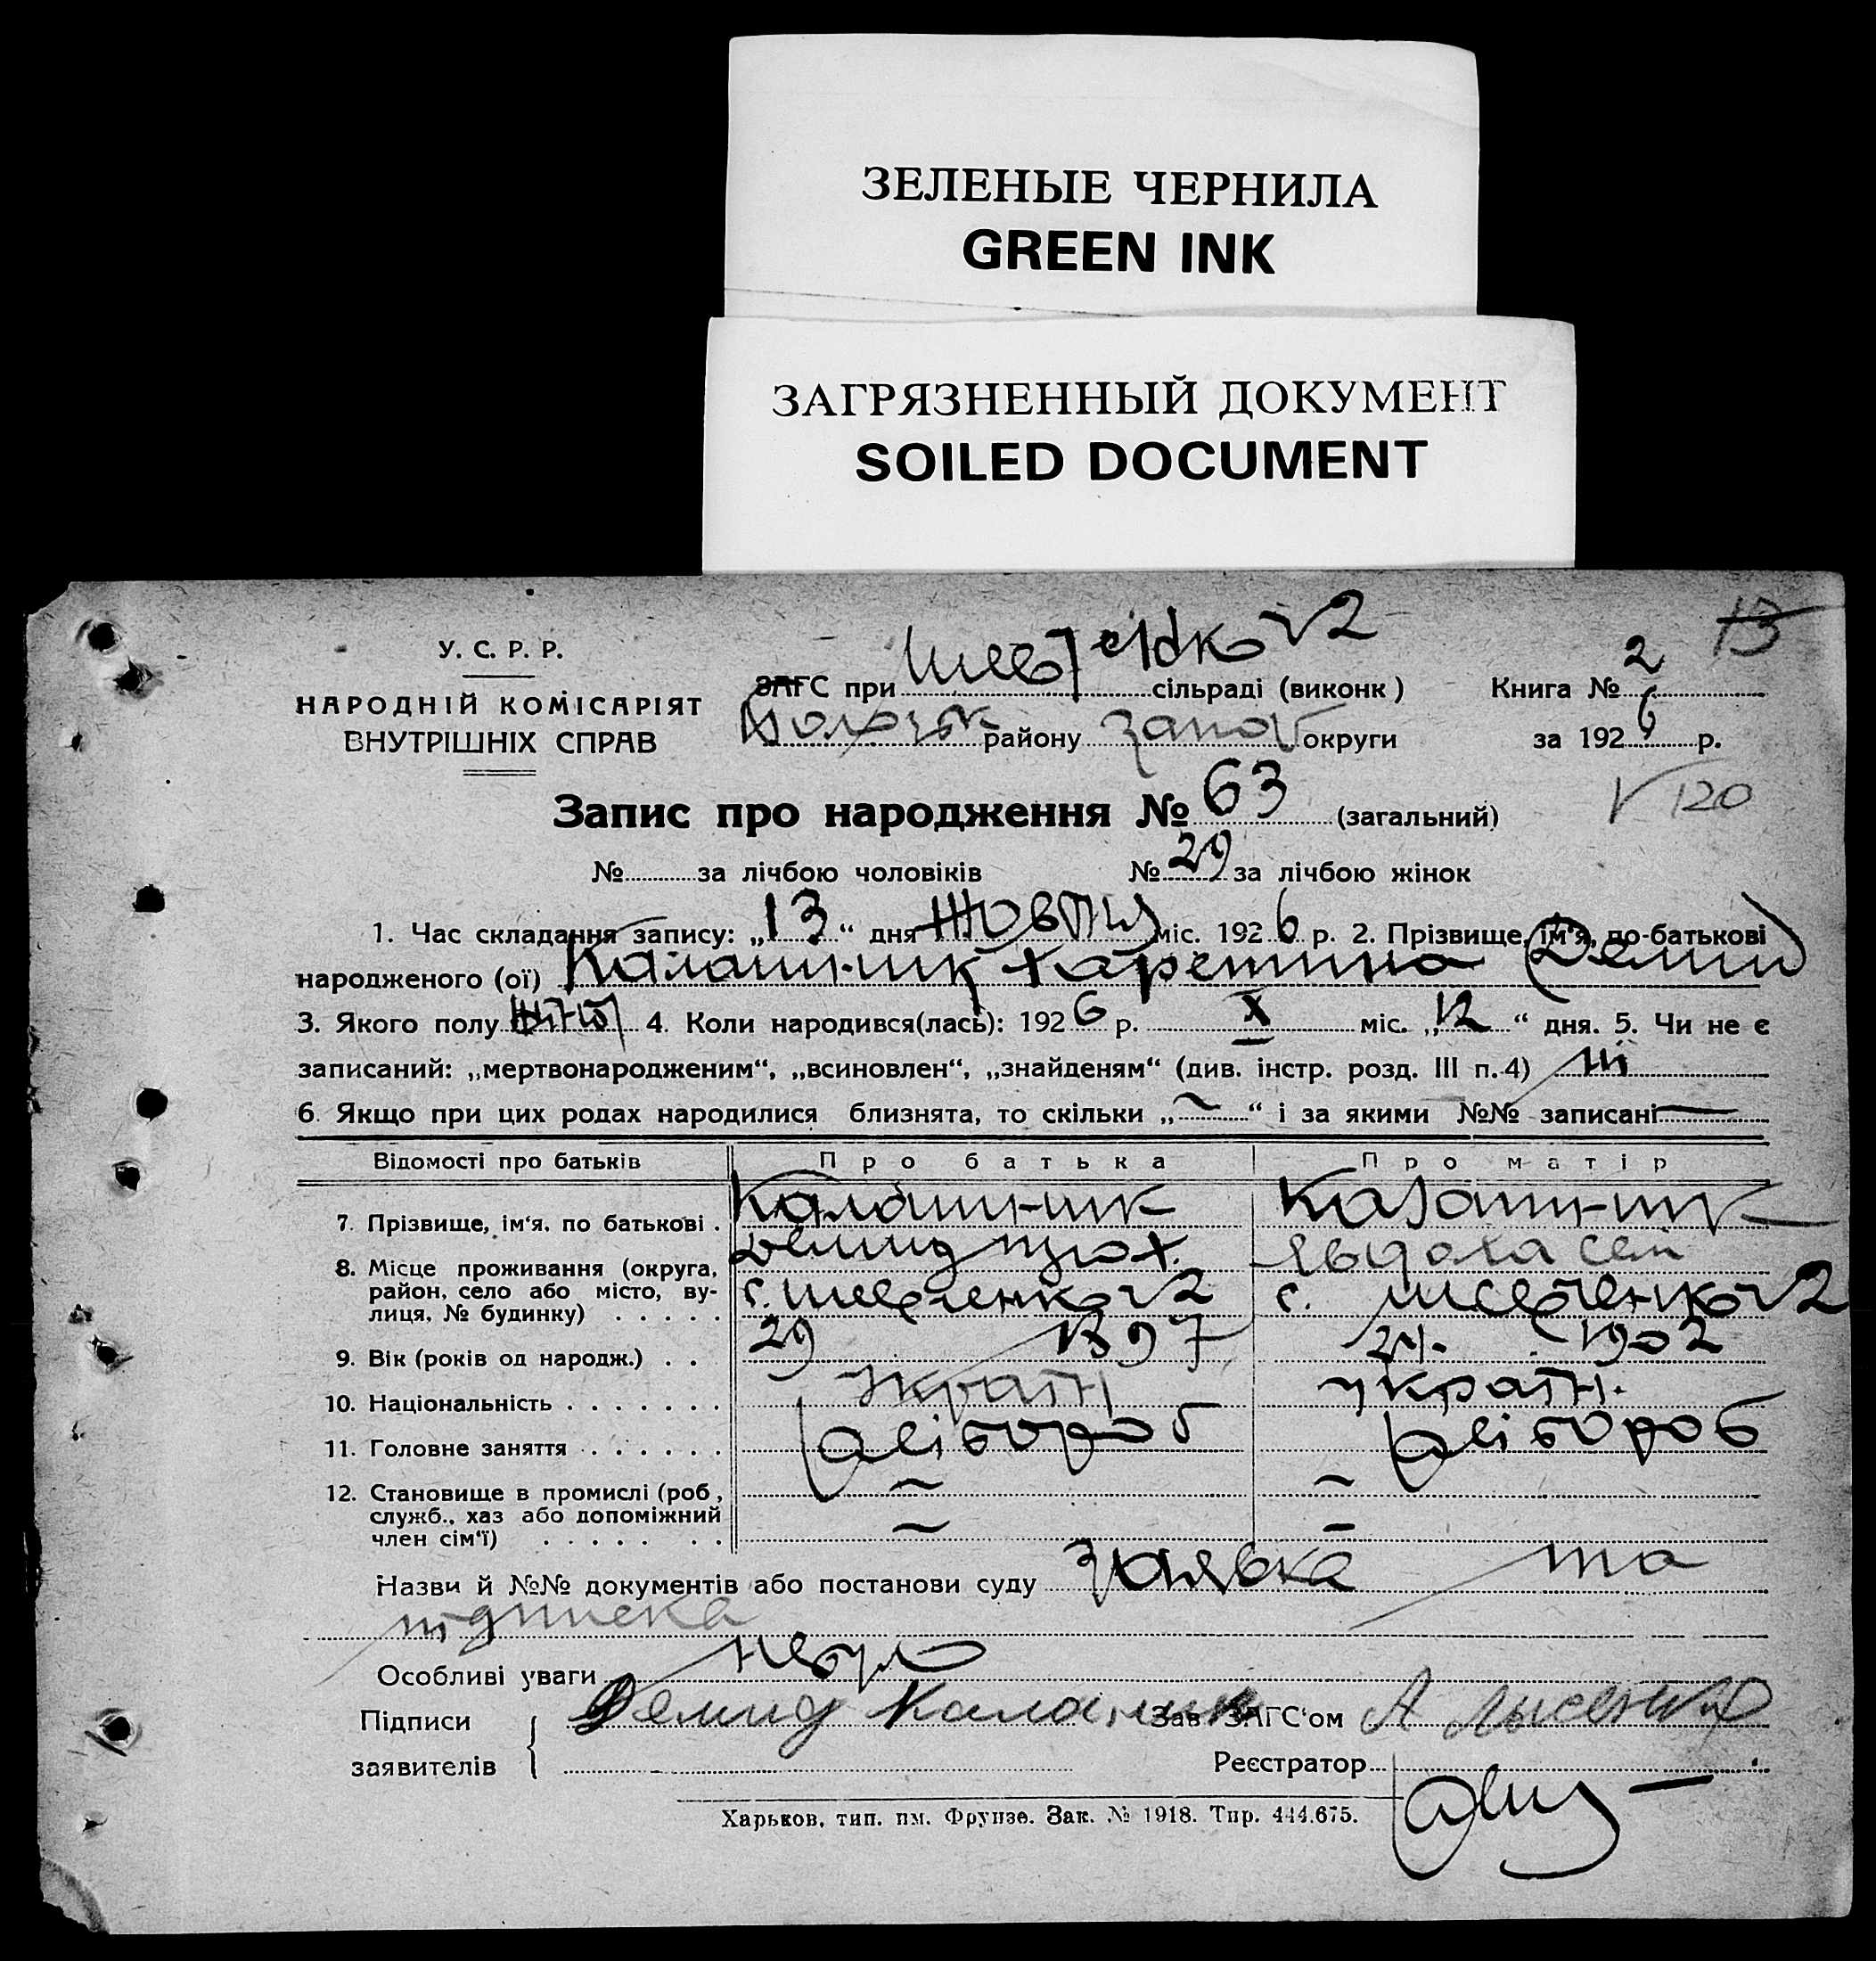 ЗЕЛЕНЫЕ ЧЕРНИЛА
GREEN INK
ЗАГРЯЗНЕННЫЙ ДОКУМЕНТ
SOILED DOCUMENT
13
У. С. Р. Р.
НАРОДНІЙ КОМІСАРІЯТ
ВНУТРІШНІХ СПРАВ
ЗАГС при Шевченков 2 сільраді (виконк) Книга № 2
району Запов округи за 1926 р.
V 120
Запис про народження № 63 (загальний)
№ за лічбою чоловіків № 29 за лічбою жінок
1. Час складання запису: „13“ дня Жовтня міс. 1926 р. 2. Прізвище, ім'я, по-батькові
народженого (ої) Калашник Харетина Демид
3. Якого полу 4. Коли народився(лась): 1926 р. X міс. „12“ дня. 5. Чи не є
записаний: „мертвонародженим“, „всиновлен“, „знайденям“ (див. інстр. розд. III п. 4) ні
6. Якщо при цих родах народилися близнята, то скільки „~“ і за якими №№ записані —
Відомості про батьків Про батька Про матір
7. Прізвище, ім'я, по батькові . Калашник Калашник
Демид Явдоха Сем
8. Місце проживання (округа, район, село або місто, вулиця, № будинку) . . . . . с. Шевченков 2 с. Шевченков 2
9. Вік (років од народж.) . . 29 1897 24. 1902
10. Національність . . . . . . . Україн україн.
11. Головне заняття . . . . . . хлібороб хлібороб
12. Становище в промислі (роб, служб., хаз або допоміжний член сім'ї) . . . . . . . ~ ~
~ –
Назви й №№ документів або постанови суду заявка та
підписка
Особливі уваги
Підписи Демид Калашник Зав ЗАГС'ом А Лысенко
заявителів Реєстратор
Харьков, тип. им. Фрунзе. Зак. № 1918. Тир. 444.675.